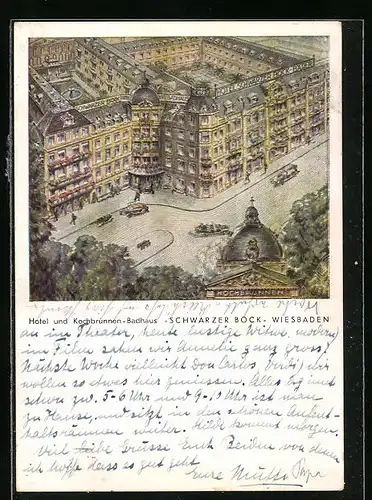 HOTEL SCHWARZER BOCK
KOCHBRUNNEN
Hotel und Kochbrunnen-Badhaus "SCHWARZER BOCK" WIESBADEN
an im Theater, heute lustige Witwe, modern,
im Film sahen wir Amelie ganz gross!
Nächste Woche vielleicht Don Carlos, Verdi, wir
wollen so etwas hier geniessen. Alles liegt
schon zw. 5-6 Uhr und 9-10 Uhr ist man
zu Hause, und sitzt in den schönen Aufent-
haltsräumen weiter. Hilde kommt morgen.
Viel liebe Grüsse Euch Beiden von denen
ich hoffe dass es gut geht
Eure Mutti Papa